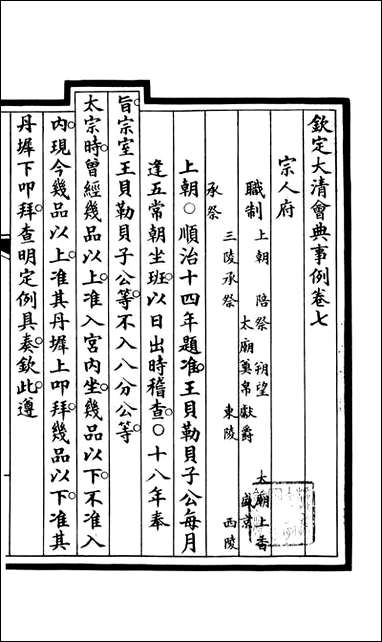 欽定大清會典事例卷七
宗人府
職制
上朝 陪祭 朔望 太廟上香
太廟奠帛獻爵 盛京
三陵承祭 東陵 西陵
承祭
上朝○順治十四年題准王貝勒貝子公每月
逢五常朝坐班以日出時稽查○十八年奉
旨宗室王貝勒貝子公等不入八分公等
太宗時曾經幾品以上准入宮內坐幾品以下不准入
內現今幾品以上准其丹墀上叩拜幾品以下准其
丹墀下叩拜查明定例具奏欽此遵